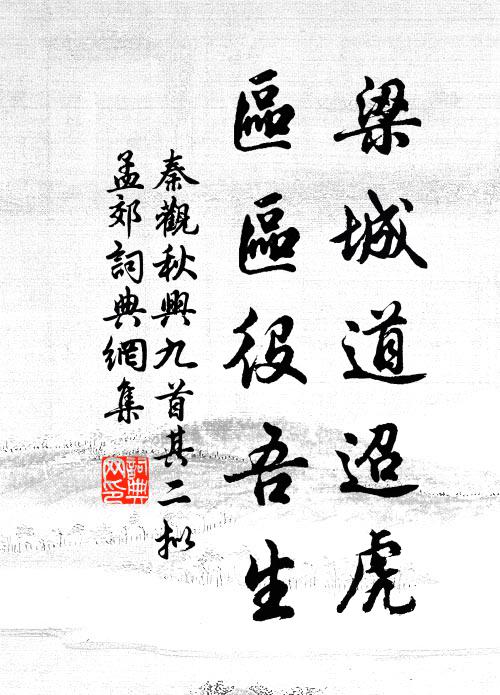 梁城道迢虎
區區役吾生
秦觀秋興九首其二擬
孟郊詞典網集
詞典網印